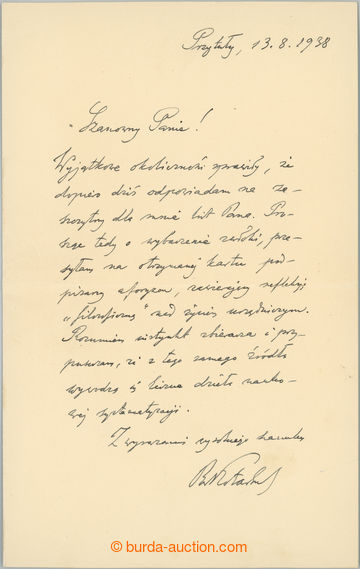 Przytuły, 13.8.1938
Szanowny Panie!
Wyjątkowe okoliczności sprawiły, że
dopiero dziś odpowiadam na za-
szczytny dla mnie list Pana. Pro-
szę tedy o wybaczenie zwłoki, prze-
syłam na otrzymanej kartce pod-
pisany aforyzm, zawierający refleksję
„filozoficzną" nad życiem urzędniczym.
Rozumiem instynkt zbieracza i przy-
puszczam, iż z tego samego źródła
wywodzą się liczne dzieła nauko-
wej systematyzacji.
Z wyrazami wysokiego szacunku
© burda-auction.com